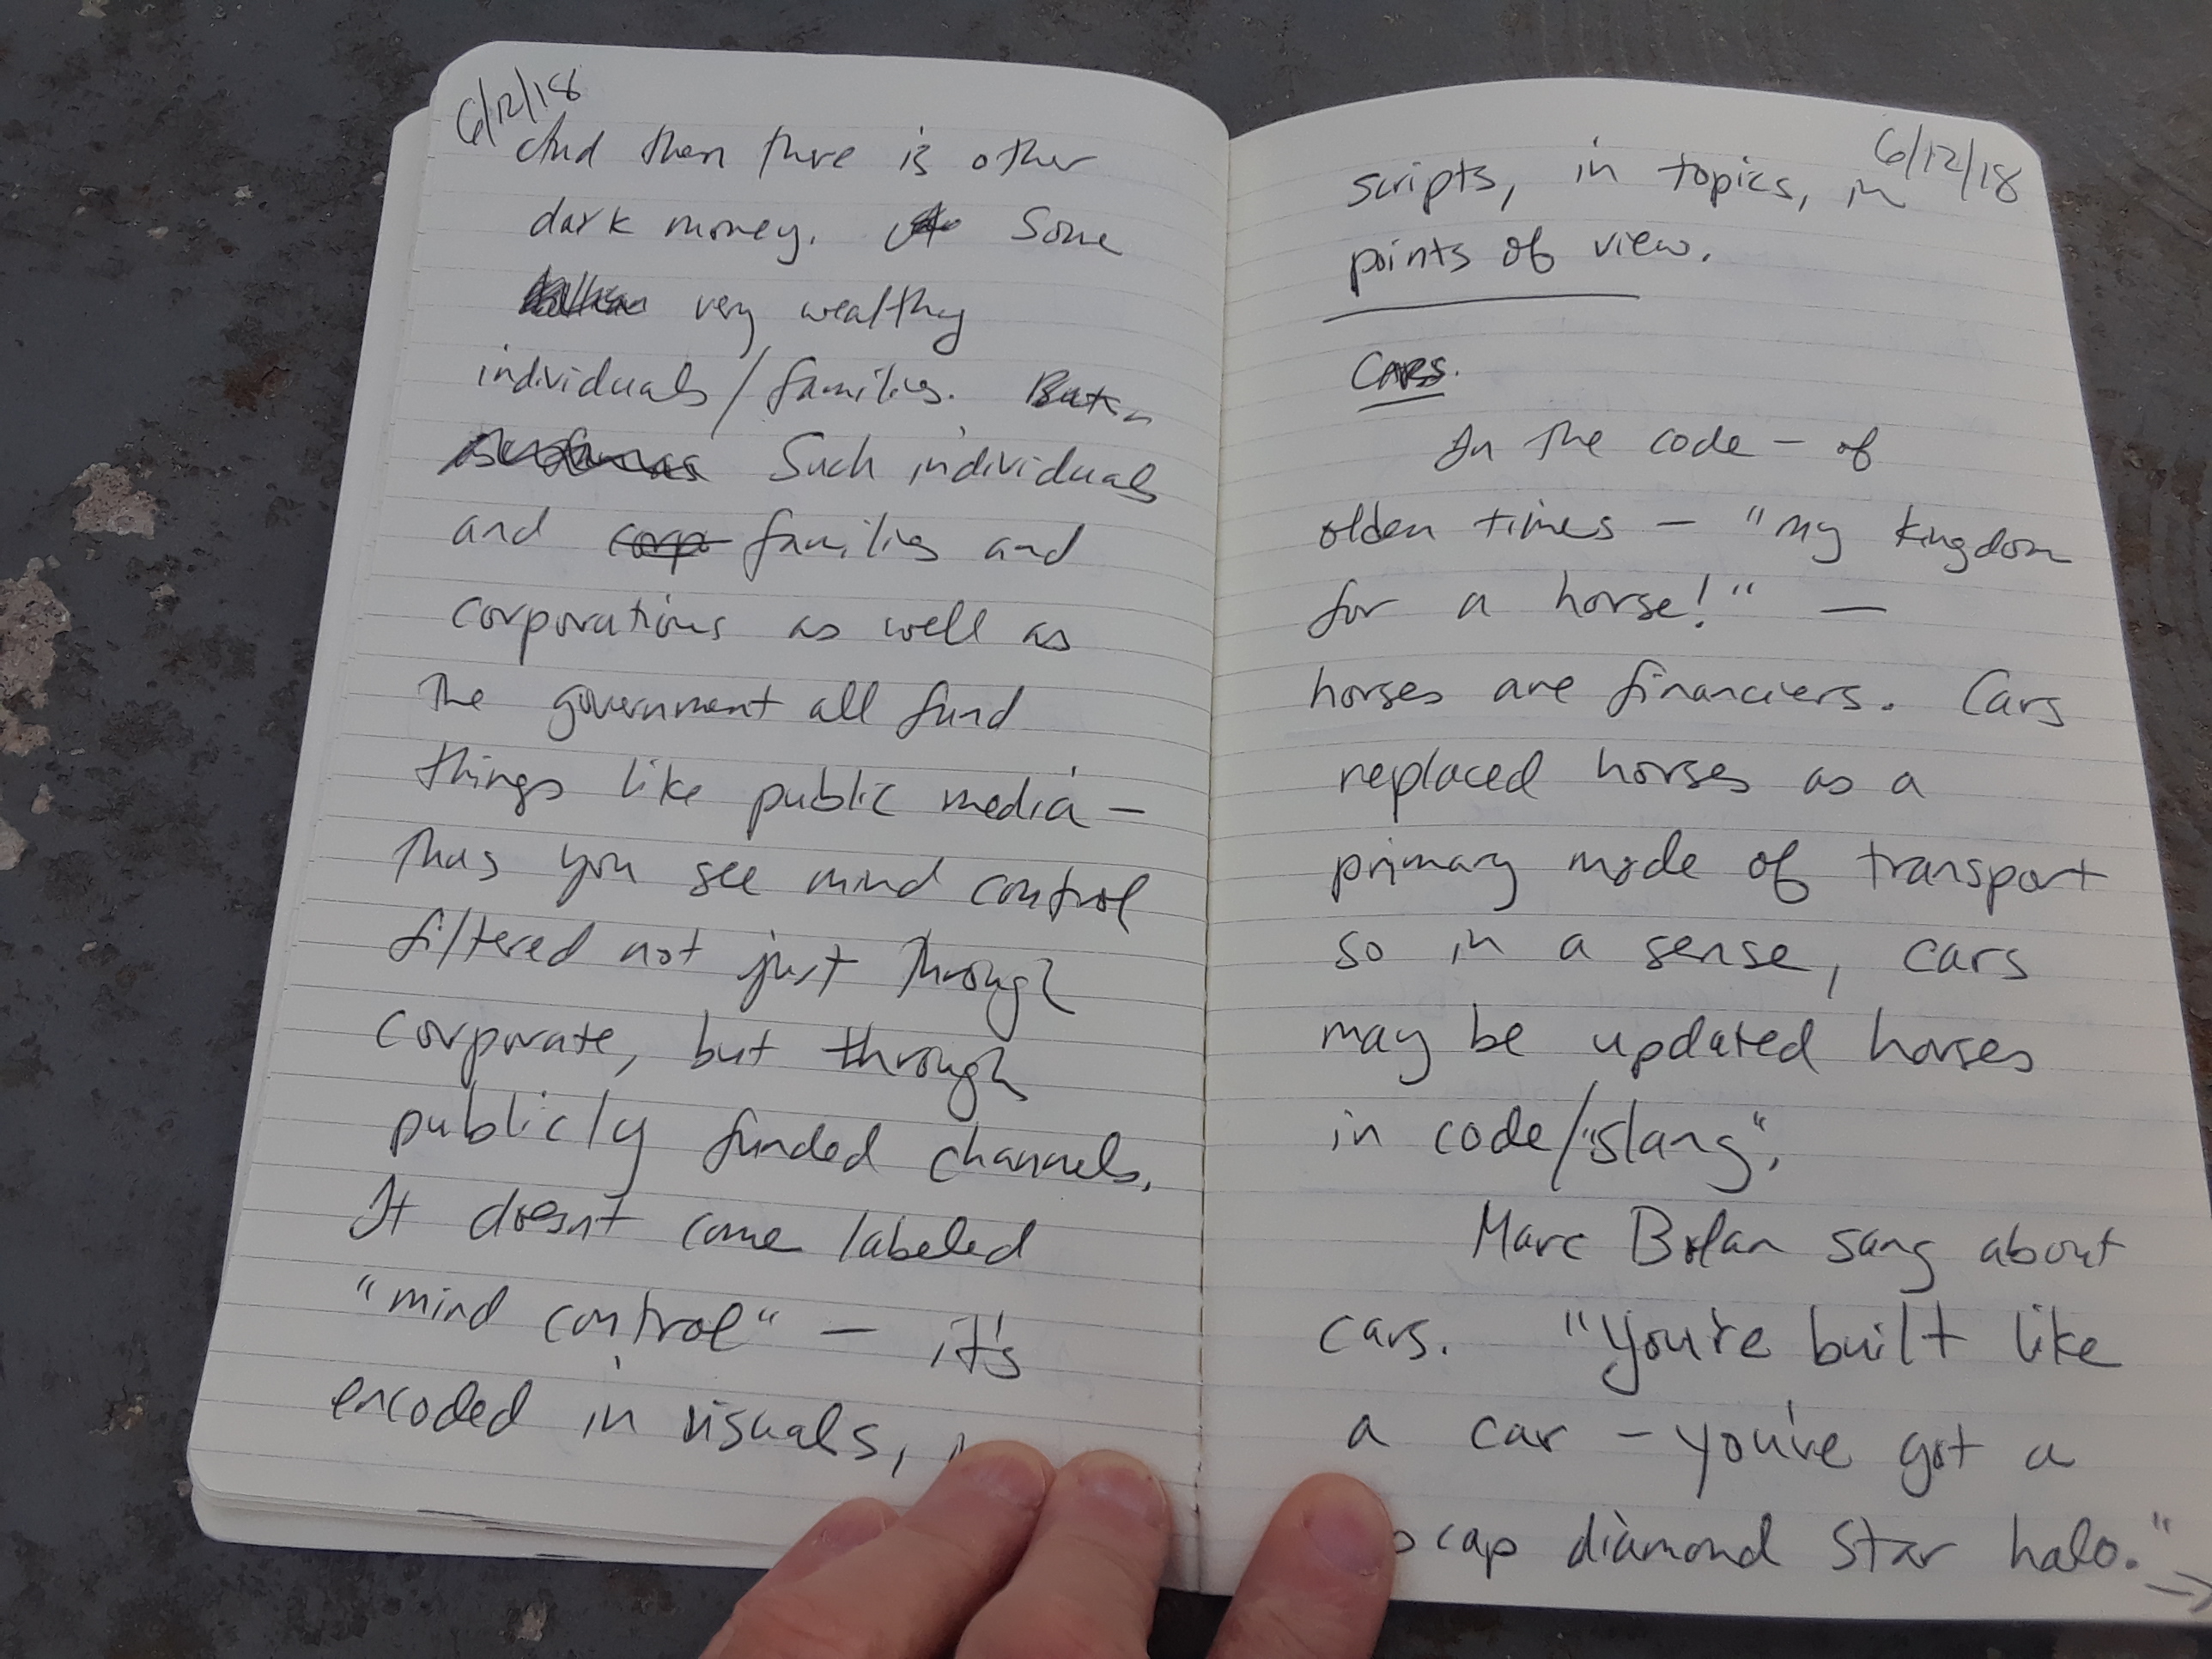 6/12/18
And then there is other
dark money. Some
very wealthy
individuals/families. But
Such individuals
and corp families and
corporations as well as
the government all fund
things like public media —
thus you see mind control
filtered not just through
corporate, but through
publicly funded channels.
It doesn't come labeled
"mind control" — it's
encoded in visuals,
6/12/18
scripts, in topics, in
points of view.
Cars.
In the code — of
olden times — "my kingdom
for a horse!" —
horses are financiers. Cars
replaced horses as a
primary mode of transport
so in a sense, cars
may be updated horses
in code/"slang".
Marc Bolan sang about
cars. "You're built like
a car — you've got a
cap diamond star halo."
→